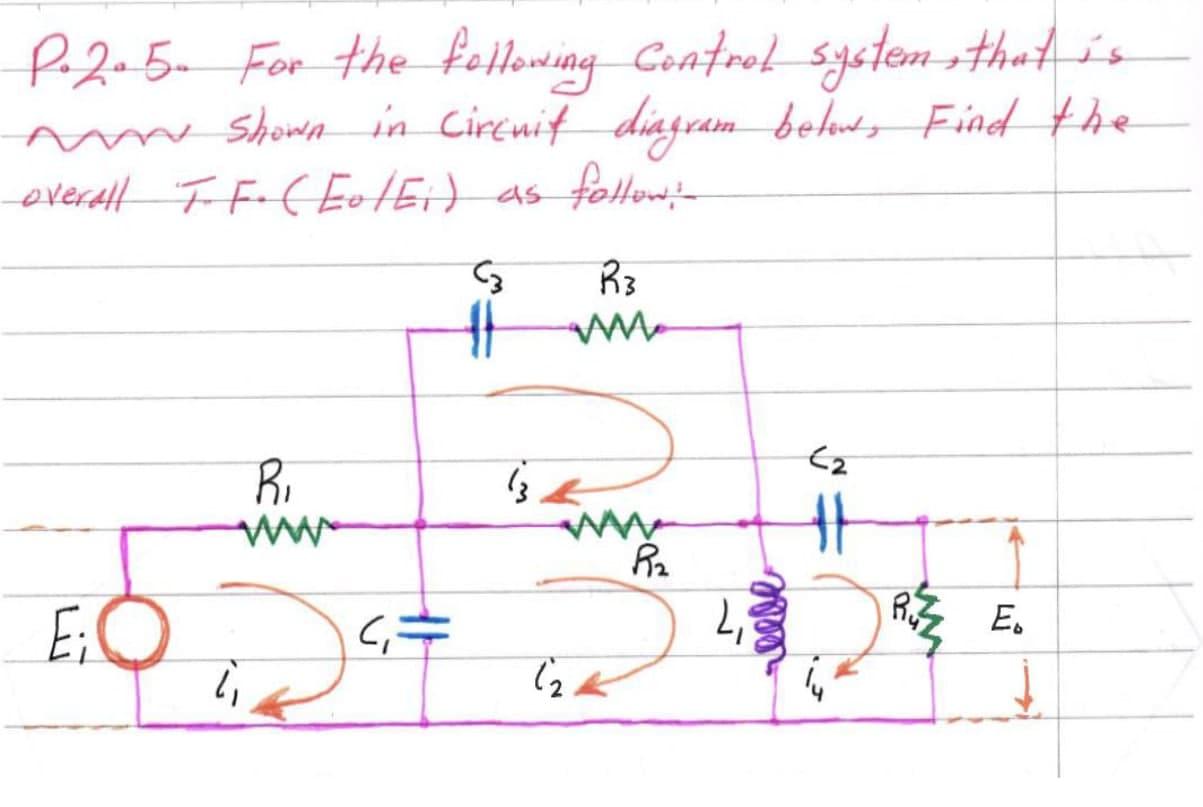 P.2.5. For the following Control system, that is
shown in Circuit diagram below, Find the
overall T.F. (Eo/Ei) as follow:-
C3 R3
C2
R1 i3
R2
Ei C1 L1 R4 Eo
i1 i2 i4